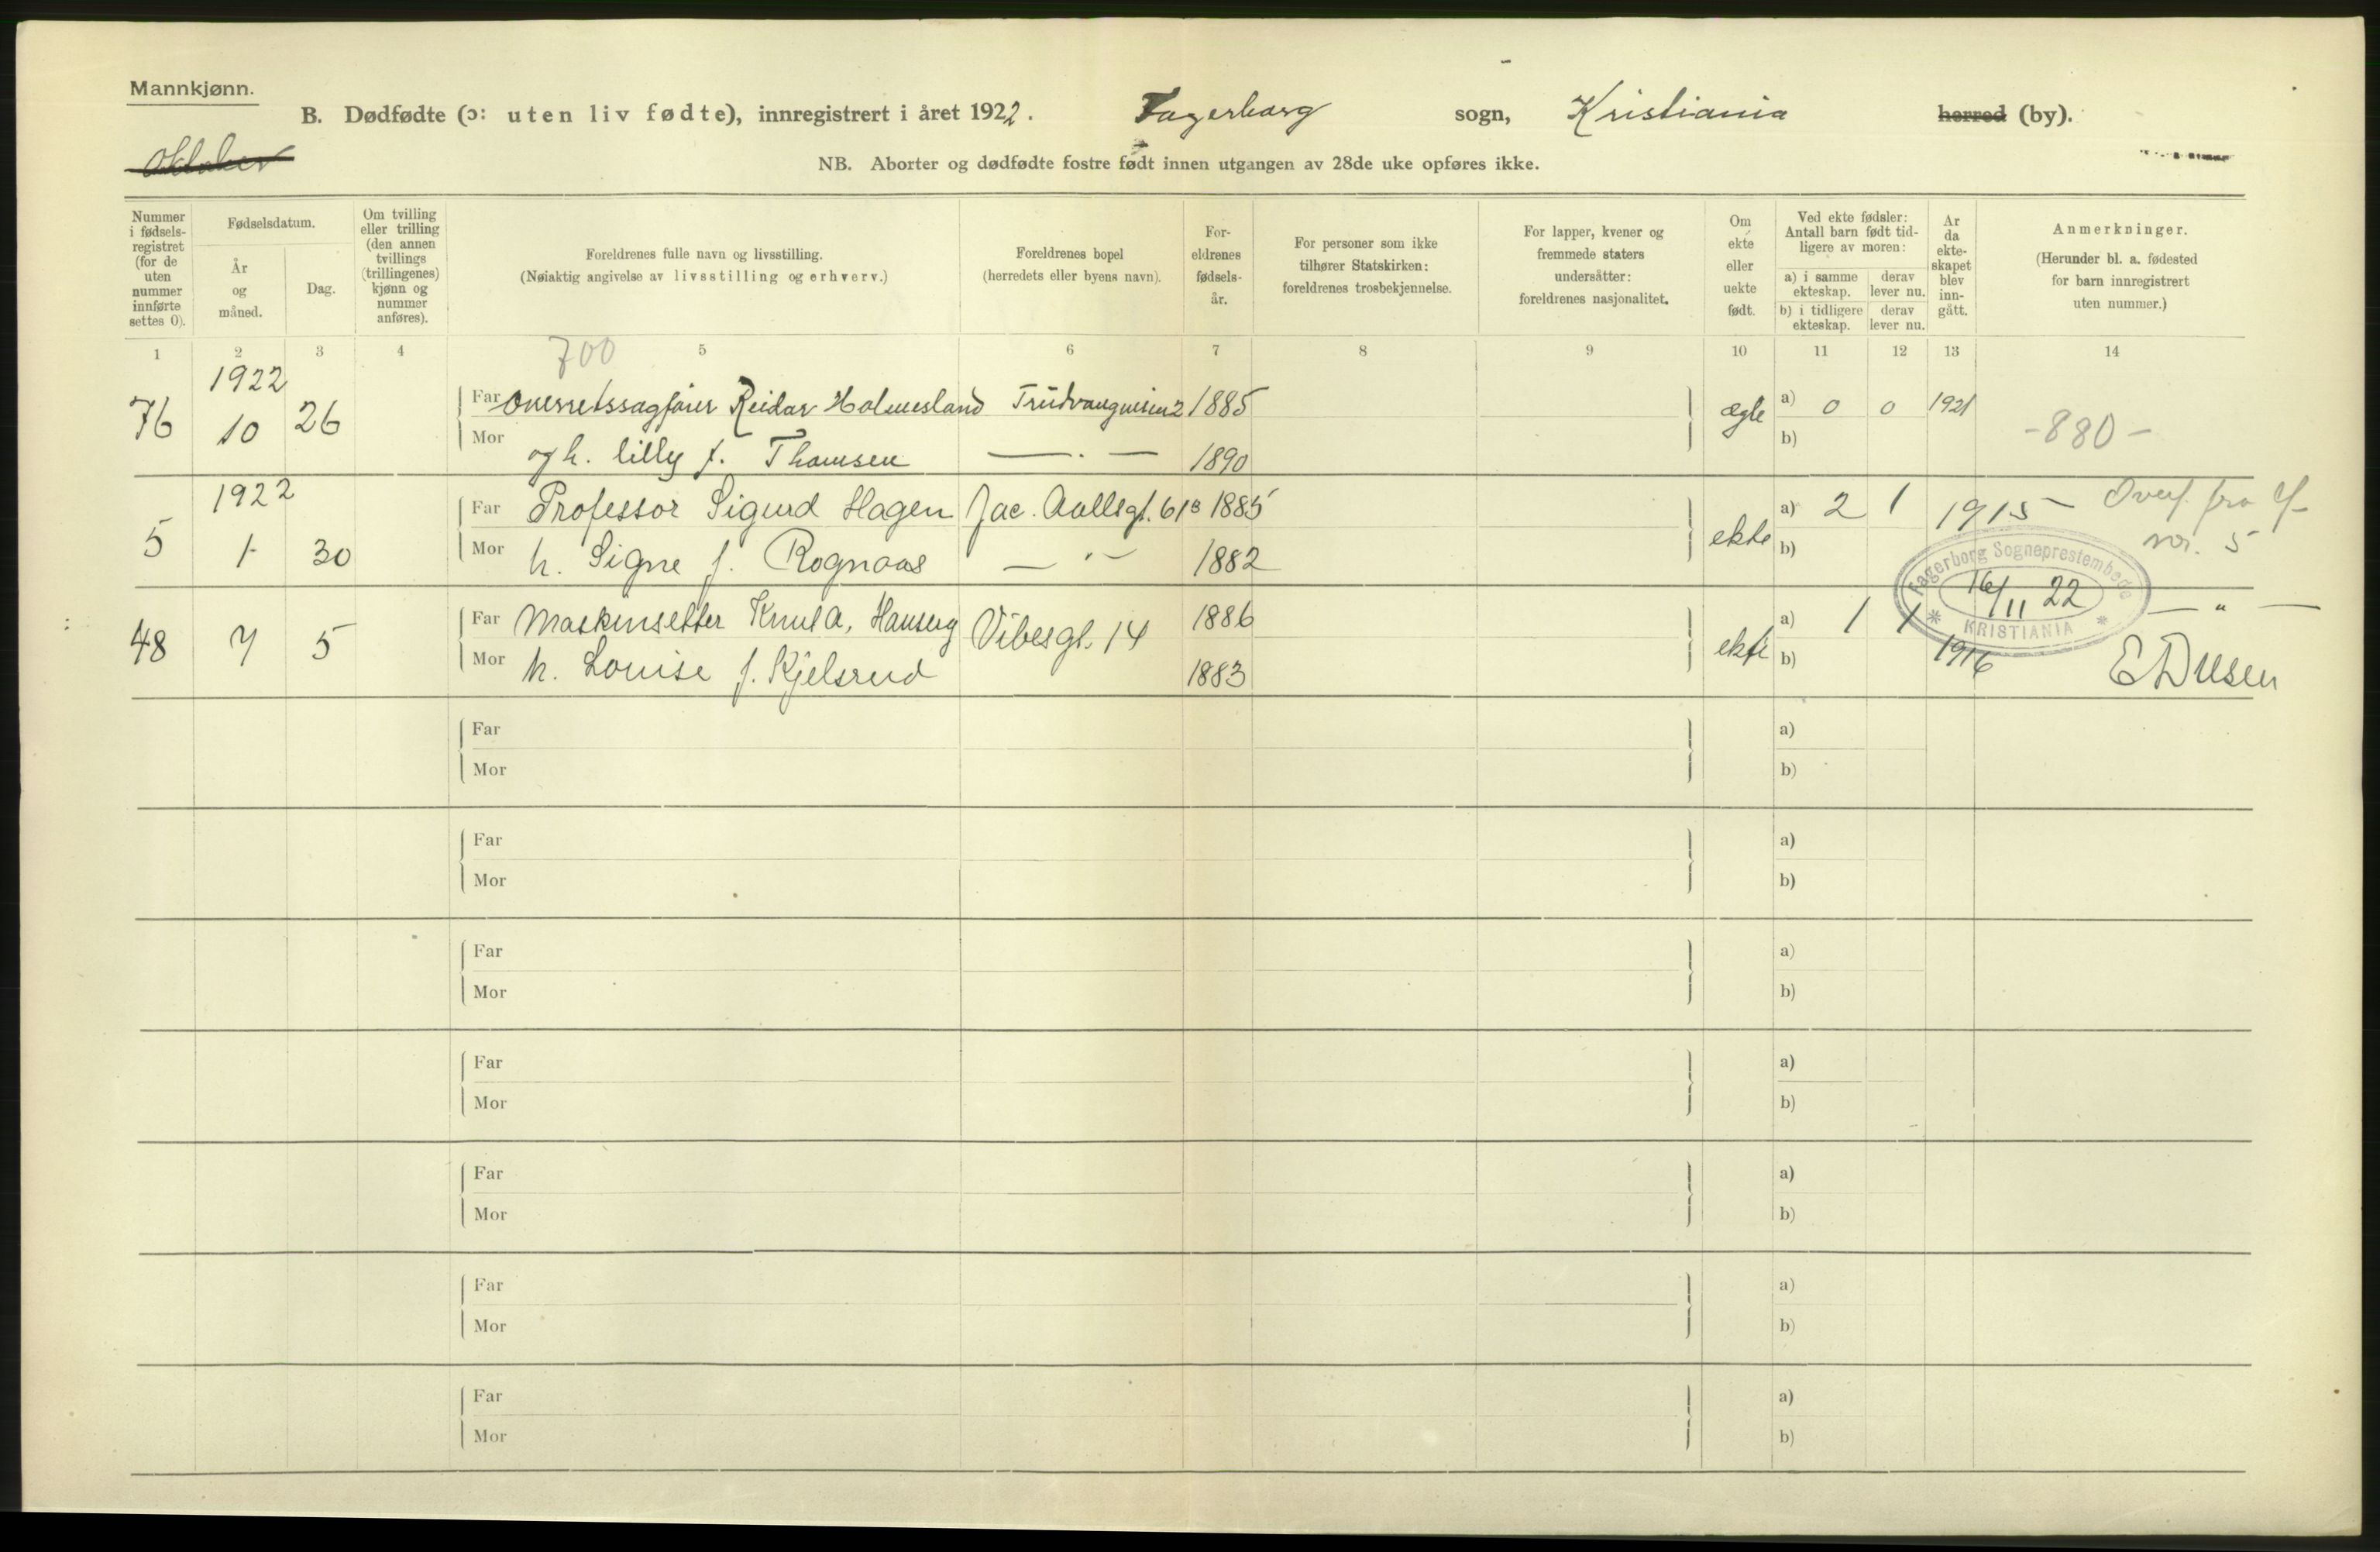 Mannkjønn.
B. Dødfødte (ɔ: uten liv fødte), innregistrert i året 1922. Fagerborg sogn, Kristiania herred (by).
Oktober
NB. Aborter og dødfødte fostre født innen utgangen av 28de uke opføres ikke.
Nummer i fødsels-registret (for de uten nummer innførte settes 0).
Fødselsdatum.
År og måned.
Dag.
Om tvilling eller trilling (den annen tvillings (trillingenes) kjønn og nummer anføres).
Foreldrenes fulle navn og livsstilling.
(Nøiaktig angivelse av livsstilling og erhverv.)
Foreldrenes bopel
(herredets eller byens navn).
For-eldrenes fødsels-år.
For personer som ikke tilhører Statskirken: foreldrenes trosbekjennelse.
For lapper, kvener og fremmede staters undersåtter: foreldrenes nasjonalitet.
Om ekte eller uekte født.
Ved ekte fødsler: Antall barn født tid-ligere av moren:
a) i samme ekteskap.
derav lever nu.
b) i tidligere ekteskap.
derav lever nu.
År da ekte-skapet blev inn-gått.
Anmerkninger.
(Herunder bl. a. fødested for barn innregistrert uten nummer.)
1 2 3 4 5 6 7 8 9 10 11 12 13 14
700
1922
76 10 26 Far Overretssagfører Reidar Holmesland Trudvangveien 2 1885 ægte a) 0 0 1921
Mor og h. Lilly f. Thomsen — . — 1890 b) - 880 -
1922
5 1 30 Far Professor Sigurd Hagen Jac. Aallsgt. 61B 1885 ekte a) 2 1 1915 - Overf. fra
nr. 5
Mor h. Signe f. Rognaas — " — 1882 b)
Fagerborg Sogneprestembede
16/11 22
KRISTIANIA
48 7 5 Far Maskinsetter Knut A. Vibesgt. 14 1886 ekte a) 1 1 1916 — " —
Mor h. Louise f. Kjelsrud 1883 b)
Far a)
Mor b)
Far a)
Mor b)
Far a)
Mor b)
Far a)
Mor b)
Far a)
Mor b)
Far a)
Mor b)
Far a)
Mor b)